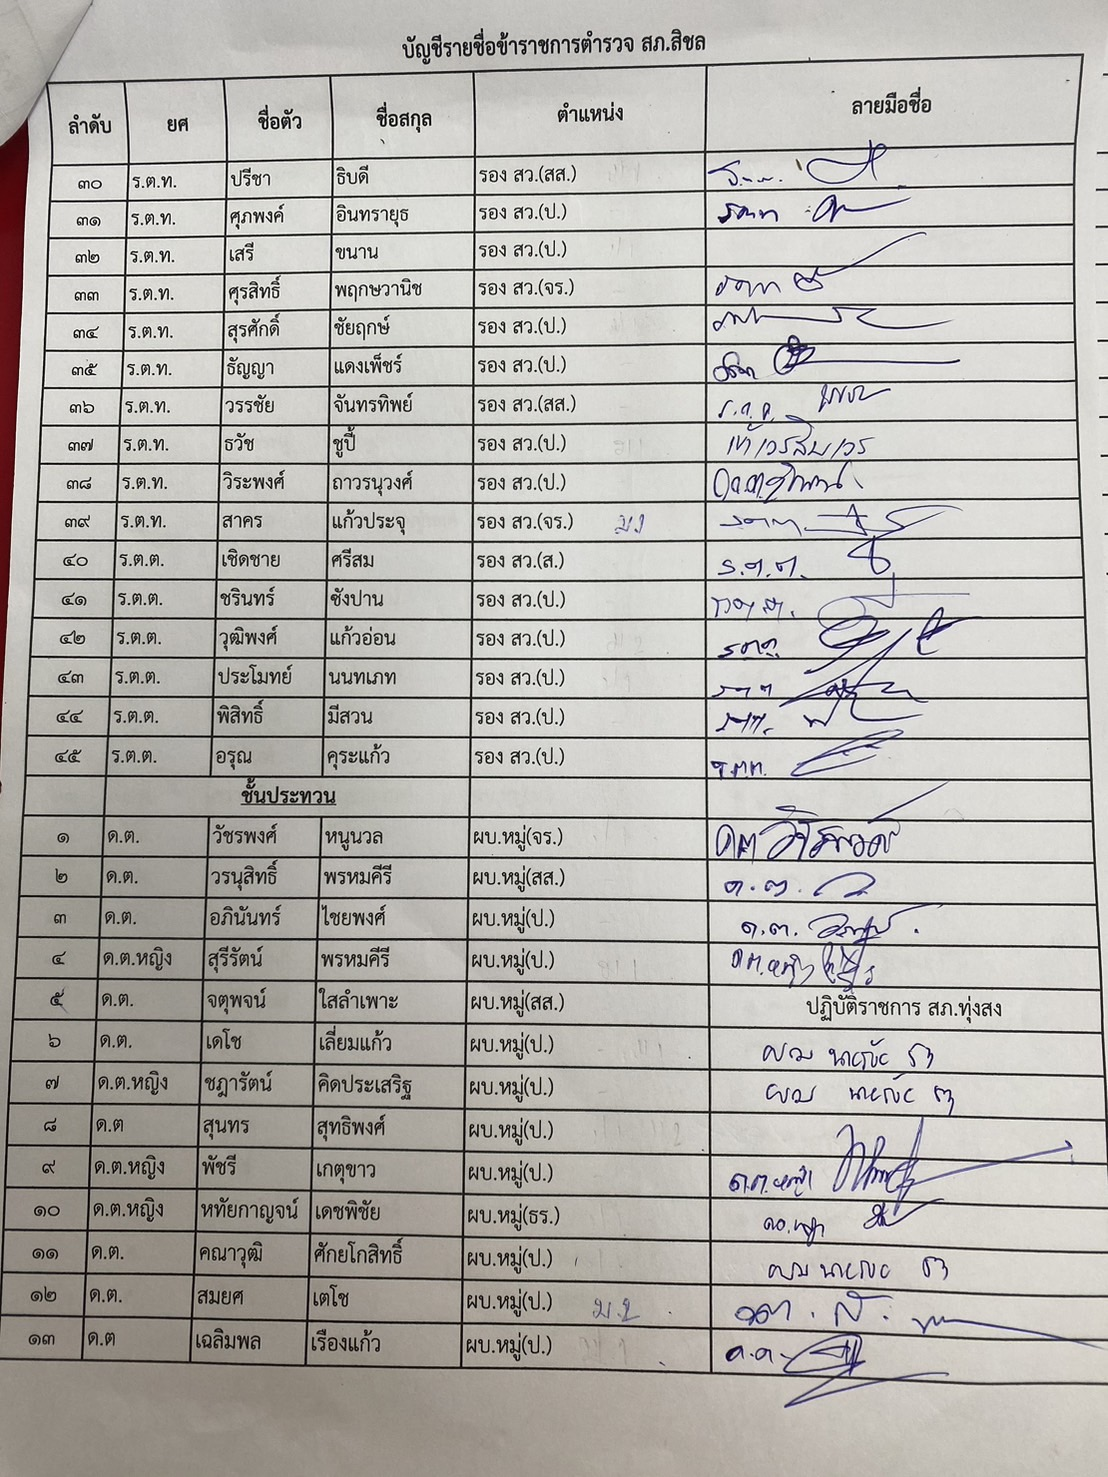 บัญชีรายชื่อข้าราชการตำรวจ สภ.สิชล
ลำดับ ยศ ชื่อตัว ชื่อสกุล ตำแหน่ง ลายมือชื่อ
๓๐ ร.ต.ท. ปรีชา ธิบดี รอง สว.(สส.)
๓๑ ร.ต.ท. ศุภพงศ์ อินทรายุธ รอง สว.(ป.)
๓๒ ร.ต.ท. เสรี ขนาน รอง สว.(ป.)
๓๓ ร.ต.ท. ศุรสิทธิ์ พฤกษวานิช รอง สว.(จร.)
๓๔ ร.ต.ท. สุรศักดิ์ ชัยฤกษ์ รอง สว.(ป.)
๓๕ ร.ต.ท. ธัญญา แดงเพ็ชร์ รอง สว.(ป.)
๓๖ ร.ต.ท. วรรชัย จันทรทิพย์ รอง สว.(สส.)
๓๗ ร.ต.ท. ธวัช ชูปี้ รอง สว.(ป.)
๓๘ ร.ต.ท. วิระพงศ์ ถาวรนุวงศ์ รอง สว.(ป.)
๓๙ ร.ต.ท. สาคร แก้วประจุ รอง สว.(จร.)
๔๐ ร.ต.ต. เชิดชาย ศรีสม รอง สว.(ส.) ร.ต.ต.
๔๑ ร.ต.ต. ชรินทร์ ซังปาน รอง สว.(ป.)
๔๒ ร.ต.ต. วุฒิพงศ์ แก้วอ่อน รอง สว.(ป.)
๔๓ ร.ต.ต. ประโมทย์ นนทเภท รอง สว.(ป.)
๔๔ ร.ต.ต. พิสิทธิ์ มีสวน รอง สว.(ป.)
๔๕ ร.ต.ต. อรุณ คุระแก้ว รอง สว.(ป.) ร.ต.ต.
ชั้นประทวน
๑ ด.ต. วัชรพงศ์ หนูนวล ผบ.หมู่(จร.)
๒ ด.ต. วรนุสิทธิ์ พรหมคีรี ผบ.หมู่(สส.) ด.ต.
๓ ด.ต. อภินันทร์ ไชยพงศ์ ผบ.หมู่(ป.) ด.ต.
๔ ด.ต.หญิง สุรีรัตน์ พรหมคีรี ผบ.หมู่(ป.) ด.ต.หญิง
๕ ด.ต. จตุพจน์ ใสลำเพาะ ผบ.หมู่(สส.) ปฏิบัติราชการ สภ.ทุ่งสง
๖ ด.ต. เดโช เลี่ยมแก้ว ผบ.หมู่(ป.)
๗ ด.ต.หญิง ชฎารัตน์ คิดประเสริฐ ผบ.หมู่(ป.)
๘ ด.ต สุนทร สุทธิพงศ์ ผบ.หมู่(ป.)
๙ ด.ต.หญิง พัชรี เกตุขาว ผบ.หมู่(ป.) ด.ต.หญิง
๑๐ ด.ต.หญิง หทัยกาญจน์ เดชพิชัย ผบ.หมู่(ธร.)
๑๑ ด.ต. คณาวุฒิ ศักยโกสิทธิ์ ผบ.หมู่(ป.)
๑๒ ด.ต. สมยศ เตโช ผบ.หมู่(ป.)
๑๓ ด.ต เฉลิมพล เรืองแก้ว ผบ.หมู่(ป.)